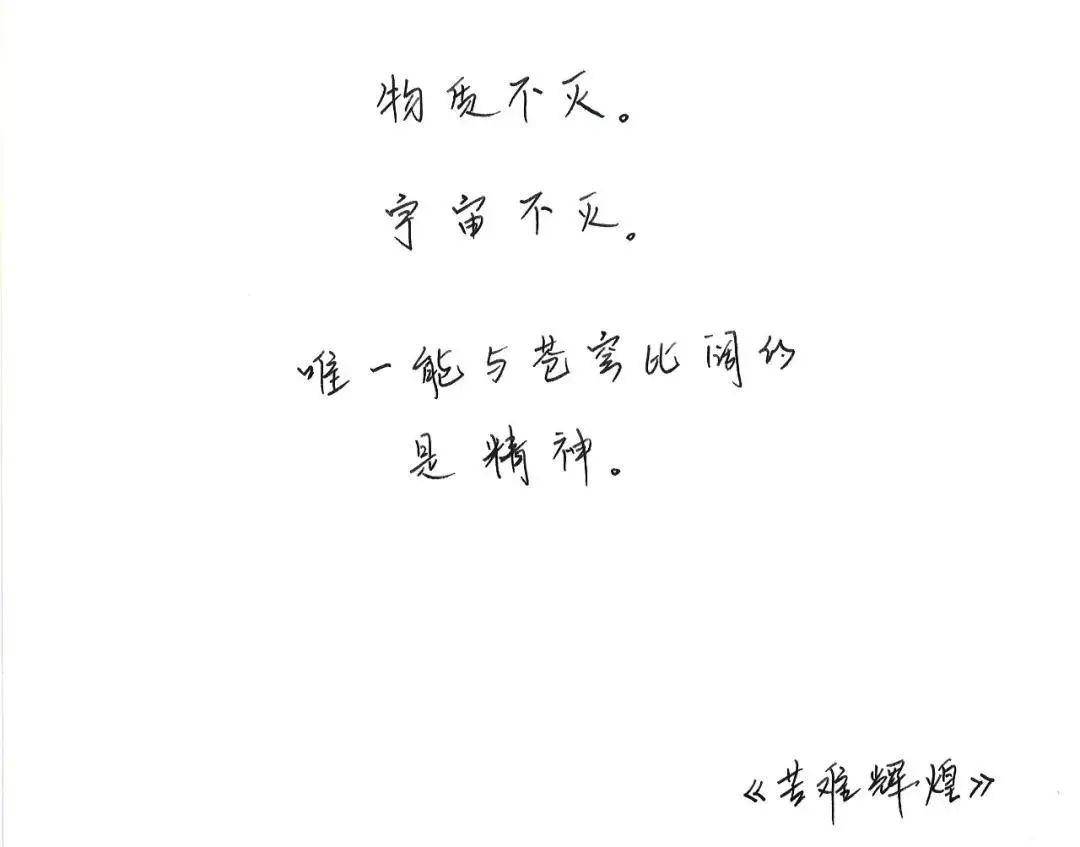 物质不灭。
宇宙不灭。
唯一能与苍穹比阔的
是精神。
《苦难辉煌》